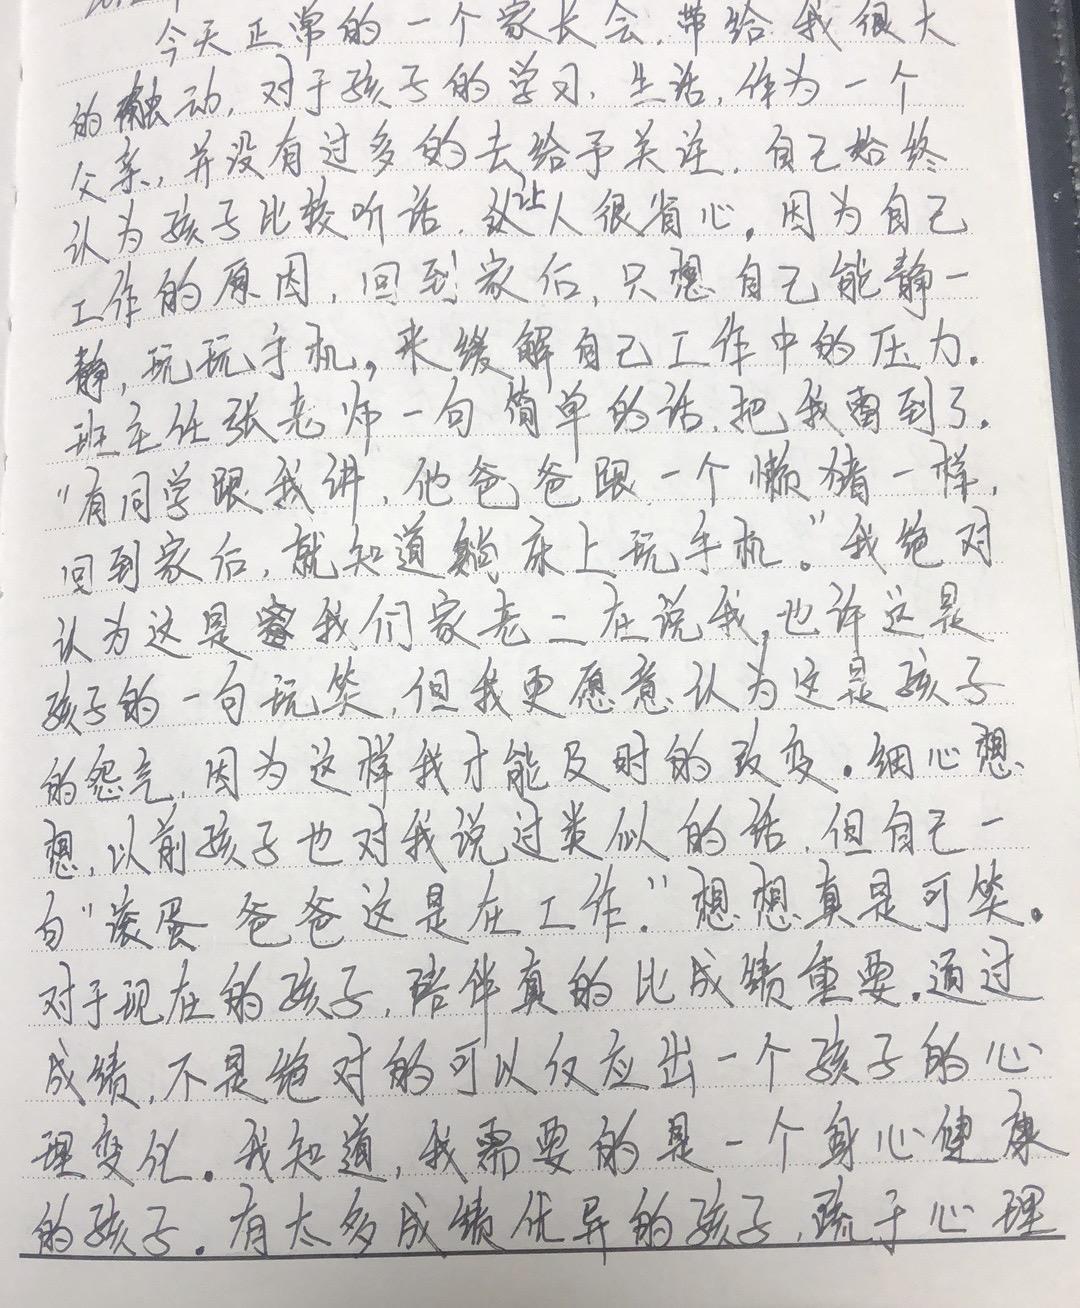 今天正常的一个家长会，带给我很大
的触动，对于孩子的学习、生活，作为一个
父亲，并没有过多的去给予关注，自己始终
认为孩子比较听话，让人很省心。因为自己
工作的原因，回到家后，只想自己能静一
静，玩玩手机。来缓解自己工作中的压力。
班主任张老师一句简单的话，把我雷到了。
"有同学跟我讲，他爸爸跟一个懒猪一样，
回到家后，就知道躺床上玩手机。"我绝对
认为这是我们家老二在说我，也许这是
孩子的一句玩笑，但我更愿意认为这是孩子
的怨气，因为这样我才能及时的改变。细心想
想，以前孩子也对我说过类似的话，但自己一
句"滚蛋 爸爸这是在工作."想想真是可笑。
对于现在的孩子，陪伴真的比成绩重要。通过
成绩，不是绝对的可以仅应出一个孩子的心
理变化。我知道，我需要的是一个身心健康
的孩子。有太多成绩优异的孩子，疏于心理